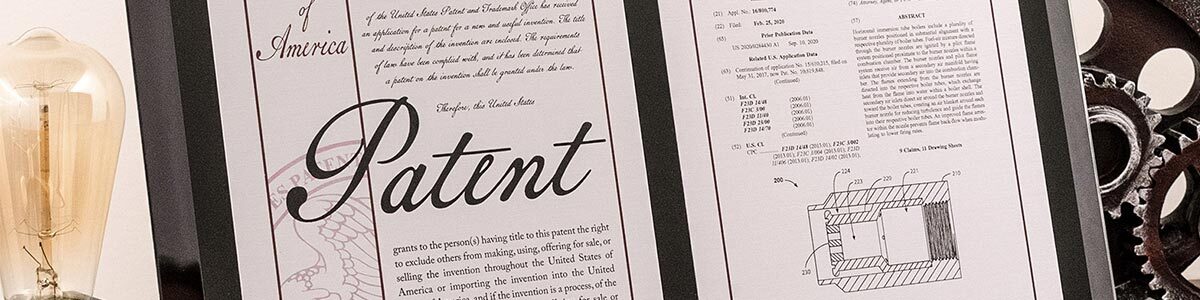 of
America
of the United States Patent and Trademark Office has received
an application for a patent for a new and useful invention. The title
and description of the invention are enclosed. The requirements
of law have been complied with, and it has been determined that
a patent on the invention shall be granted under the law.
Therefore, this United States
Patent
grants to the person(s) having title to this patent the right
to exclude others from making, using, offering for sale, or
selling the invention throughout the United States of
America or importing the invention into the United
and if the invention is a process, of the
for sale or
(21) Appl. No.: 16/810,774
(22) Filed: Feb. 25, 2020
(65) Prior Publication Data
Sep. 10, 2020
Related U.S. Application Data
(63) Continuation of application No. 15/610,215, filed on
May 31, 2017, now Pat. No.
(Continued)
(51) Int. Cl.
F23D 14/48 (2006.01)
F23C 3/00 (2006.01)
(2006.01)
(2006.01)
F23D 14/70 (2006.01)
(Continued)
(52) U.S. Cl.
CPC
(74) Attorney, Agent,
(57) ABSTRACT
Horizontal immersion tube boilers include a plurality of
burner nozzles positioned in substantial alignment with a
respective plurality of boiler tubes. Fuel-air mixture directed
through the burner nozzles are ignited by a pilot flame
system positioned proximate to the burner nozzles within a
combustion chamber. The burner nozzles and pilot flame
system receive air from a secondary air manifold having
tubes that provide secondary air into the combustion cham-
ber. The flames extending from the burner nozzles are
directed into the respective boiler tubes, which exchange
heat from the flame into water within a boiler shell. The
secondary air inlets direct air around the burner nozzles and
toward the boiler tubes, creating an air blanket around each
burner nozzle for reducing turbulence and guide the flames
into their respective boiler tubes. An improved flame arres-
tor within the nozzle prevents flame back-flow when modu-
lating to lower firing rates.
9 Claims, 11 Drawing Sheets
200
224
223
220
221
210
230